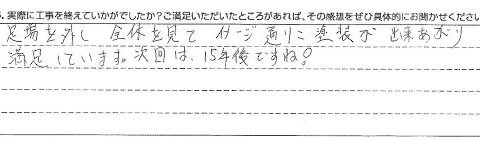 実際に工事を終えていかがでしたか?ご満足いただいたところがあれば、その感想をぜひ具体的にお聞かせください
足場を外し 全体を見て イメージ通りに 塗装が 出来あがり
満足しています。次回は、15年後ですね!